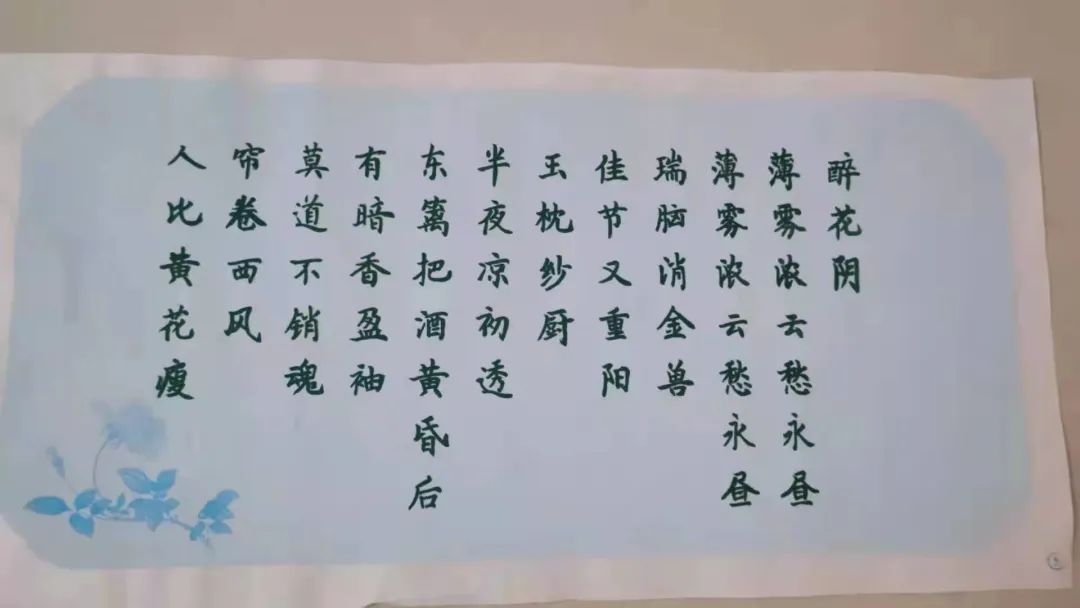 醉花阴
薄雾浓云愁永昼
薄雾浓云愁永昼
瑞脑消金兽
佳节又重阳
玉枕纱厨
半夜凉初透
东篱把酒黄昏后
有暗香盈袖
莫道不销魂
帘卷西风
人比黄花瘦